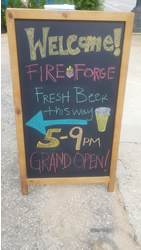 Welcome!
FIRE FORGE
FRESH BEER
this way
5-9PM
GRAND OPEN!